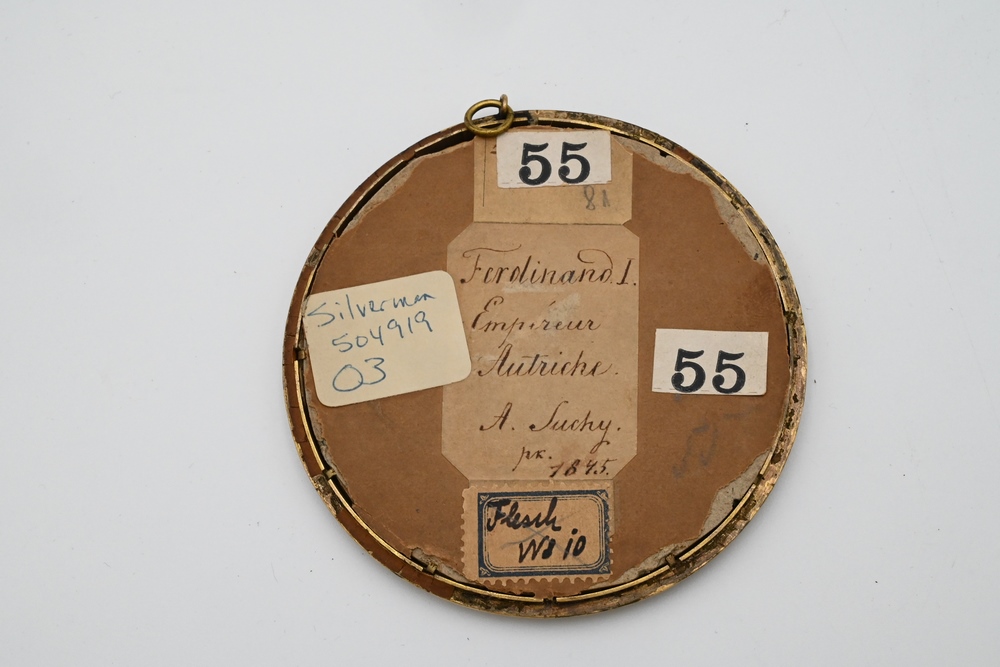 55
81
Ferdinand I.
Empereur
Autriche.
A. Suchy.
px.
1845.
Silverman
504919
03
55
Flesch
No 10